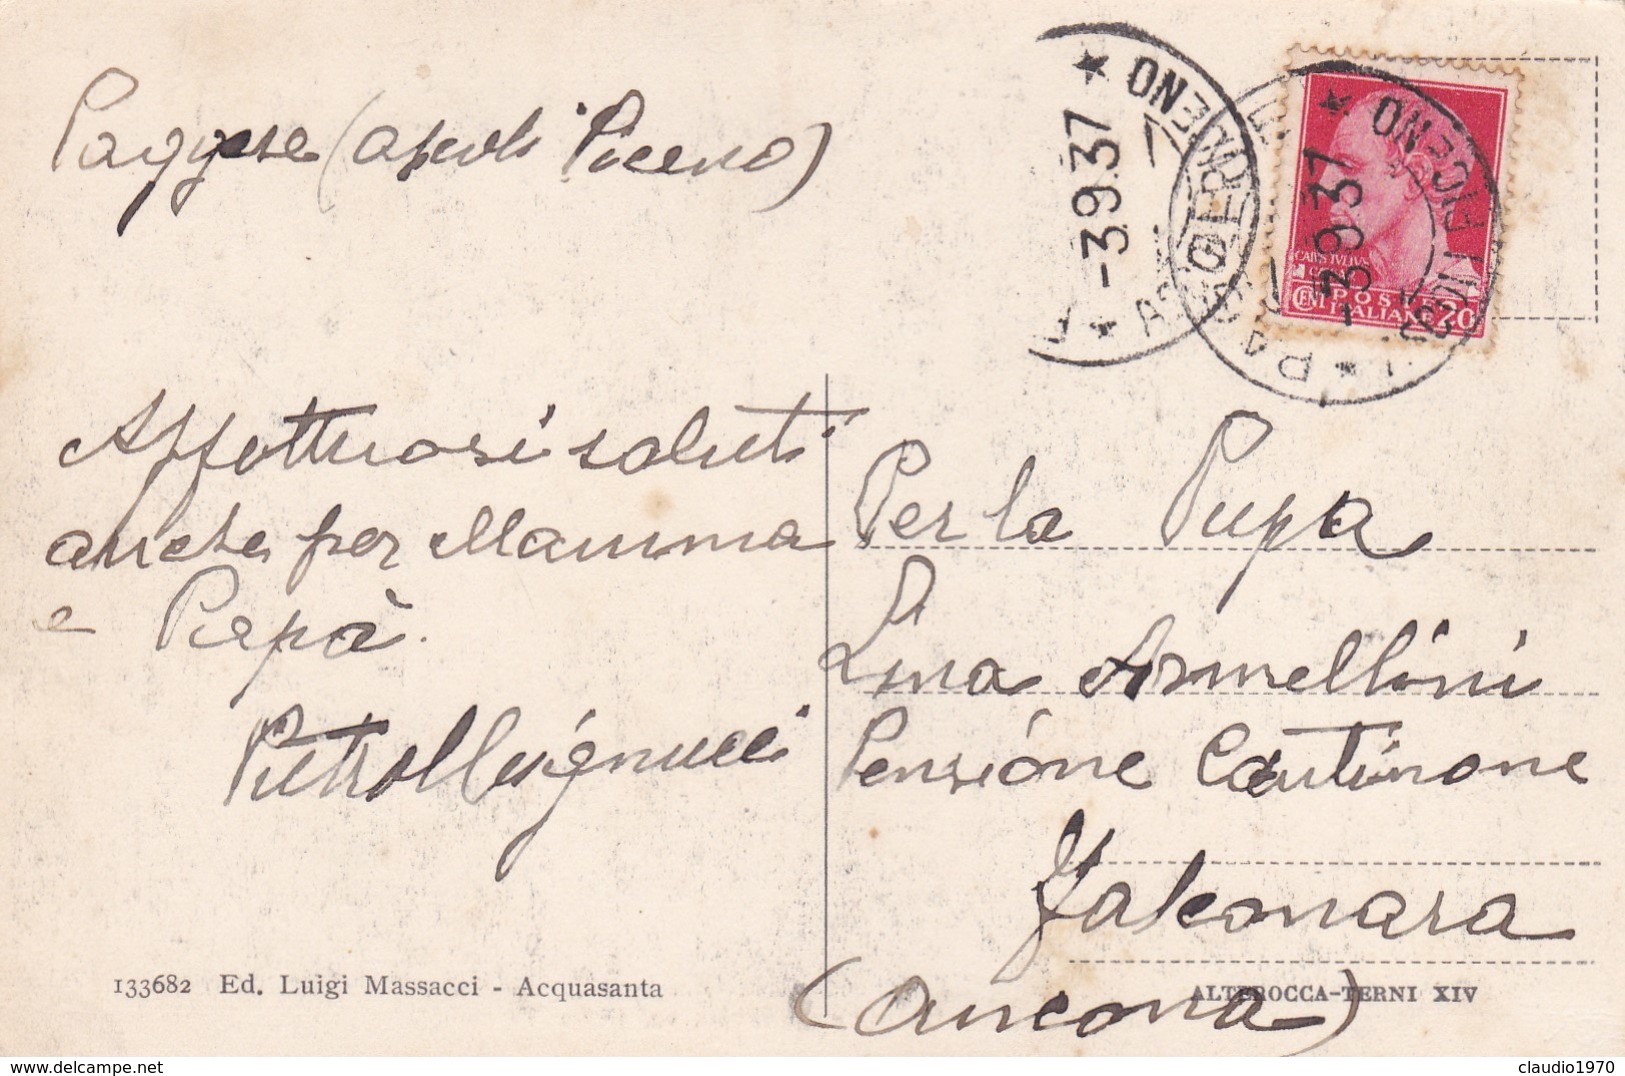 Paggese (Ascoli Piceno)
-3.9.37
PICENO
-3.9.37
CAIVS IVLIVS
CENT POSTE ITALIANE 20
Affettuosi saluti
anche per Mamma
e Papà.
Per la Pupa
Lina Armellini
Pensione Cantinone
Falconara
(Ancona)
133682 Ed. Luigi Massacci - Acquasanta
ALTEROCCA-TERNI XIV
claudio1970